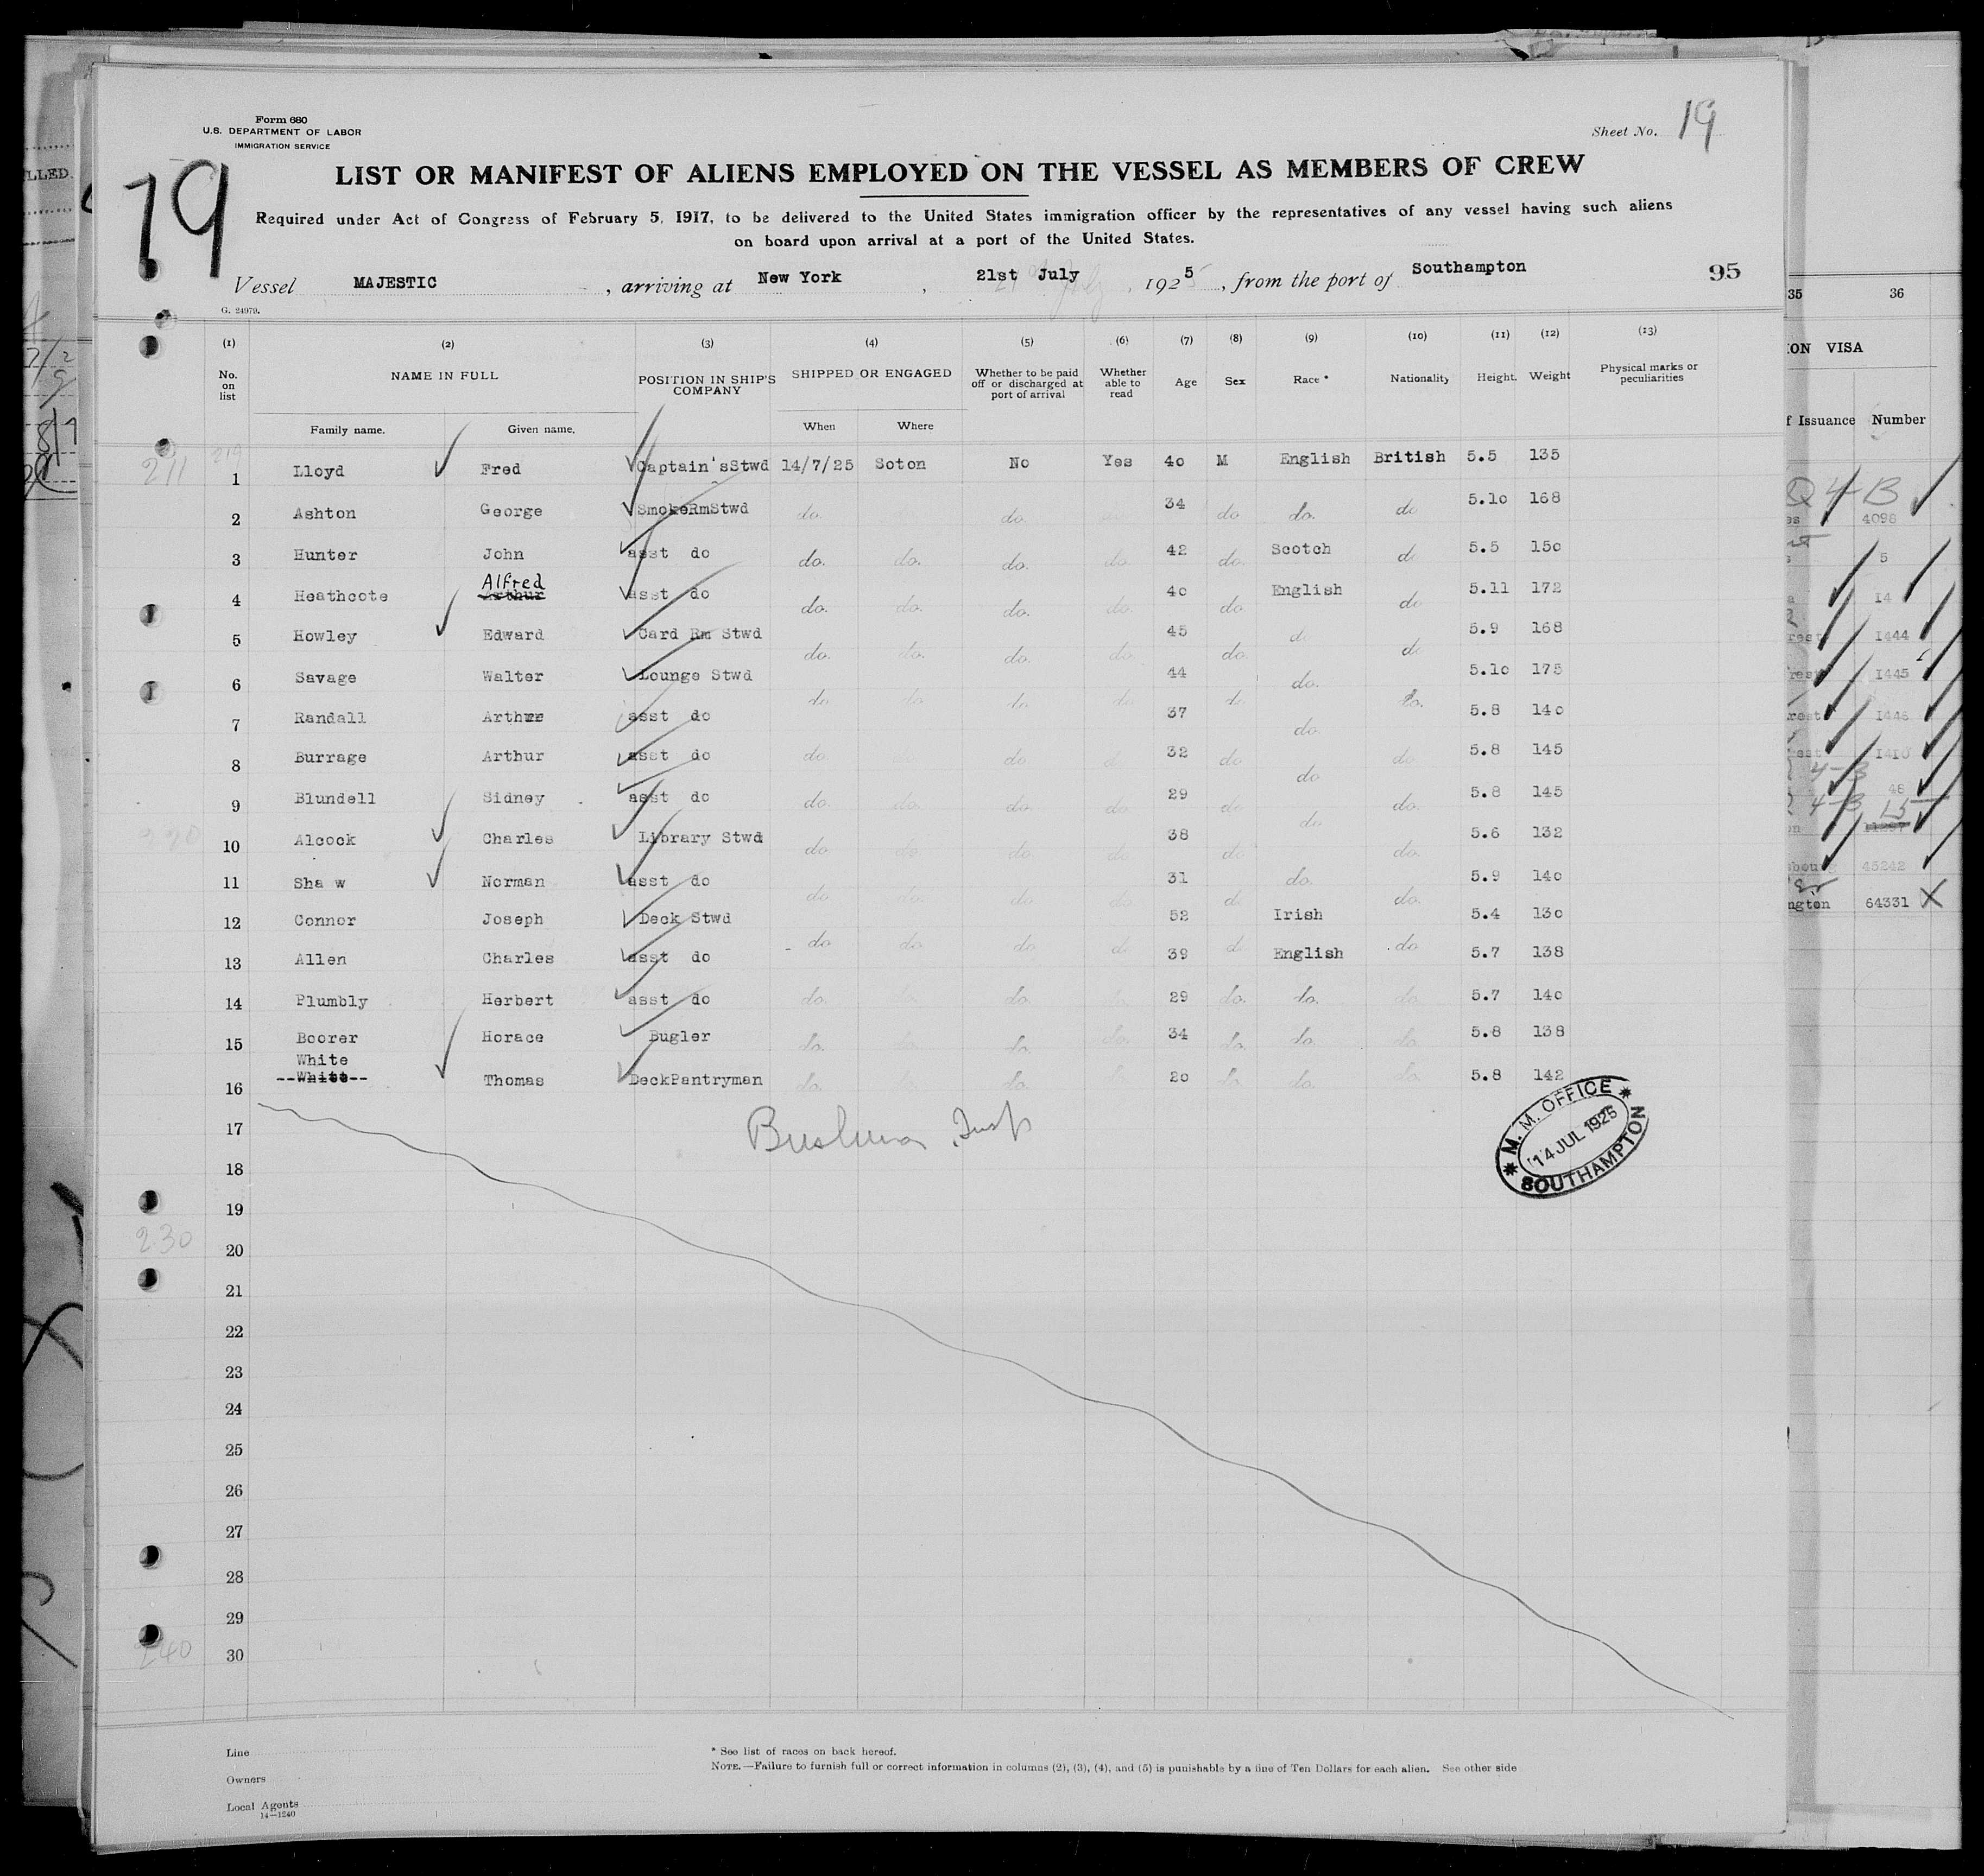 Form 680
U.S. DEPARTMENT OF LABOR
IMMIGRATION SERVICE
Sheet No. 19
19
LIST OR MANIFEST OF ALIENS EMPLOYED ON THE VESSEL AS MEMBERS OF CREW
Required under Act of Congress of February 5, 1917, to be delivered to the United States immigration officer by the representatives of any vessel having such aliens
on board upon arrival at a port of the United States.
Vessel MAJESTIC , arriving at New York , 21st July , 1925 , from the port of Southampton 95
G. 24979.
(1) (2) (3) (4) (5) (6) (7) (8) (9) (10) (11) (12) (13)
No. on list NAME IN FULL POSITION IN SHIP'S COMPANY SHIPPED OR ENGAGED Whether to be paid off or discharged at port of arrival Whether able to read Age Sex Race * Nationality Height. Weight Physical marks or peculiarities
Family name. Given name. When Where
211
1 Lloyd Fred Captain'sStwd 14/7/25 Soton No Yes 40 M English British 5.5 135
2 Ashton George SmokeRmStwd do. do 34 do do. do 5.10 168
3 Hunter John asst do do. do. do. do. 42 do. Scotch do 5.5 150
4 Heathcote Alfred Arthur asst do do. do. do. do. 40 do. English do 5.11 172
5 Howley Edward Card Rm Stwd do. do. do. do. 45 do. do do 5.9 168
6 Savage Walter Lounge Stwd do do do do 44 do do. do. 5.10 175
7 Randall Arthur asst do 37 do. 5.8 140
8 Burrage Arthur asst do do do do do 32 do do do 5.8 145
9 Blundell Sidney asst do do. do. do. do 29 do do. do. 5.8 145
10 Alcock Charles Library Stwd do do do. do 38 do do. 5.6 132
11 Sha w Norman asst do do do. do do 31 do do. do. 5.9 140
12 Connor Joseph Deck Stwd do do do do 52 d Irish do 5.4 130
13 Allen Charles asst do 39 English 5.7 138
14 Plumbly Herbert asst do do. do. 29 do. do. do 5.7 140
15 Boorer Horace Bugler do. do. do. 34 do. do. do 5.8 138
White
16 --White-- Thomas DeckPantryman do. do. 20 do. do. do 5.8 142
17
18
19
20
21
22
23
24
25
26
27
28
29
30
230
240
M. M. OFFICE
14 JUL 1925
SOUTHAMPTON
Line
Owners
Local Agents
14—1240
* See list of races on back hereof.
NOTE.—Failure to furnish full or correct information in columns (2), (3), (4), and (5) is punishable by a fine of Ten Dollars for each alien. See other side
35 36
ION VISA
f Issuance Number
4-B
4098
5
14
1444
1445
1446
1410
4-B
48
4-B 15
45242
ngton 64331
LLED.